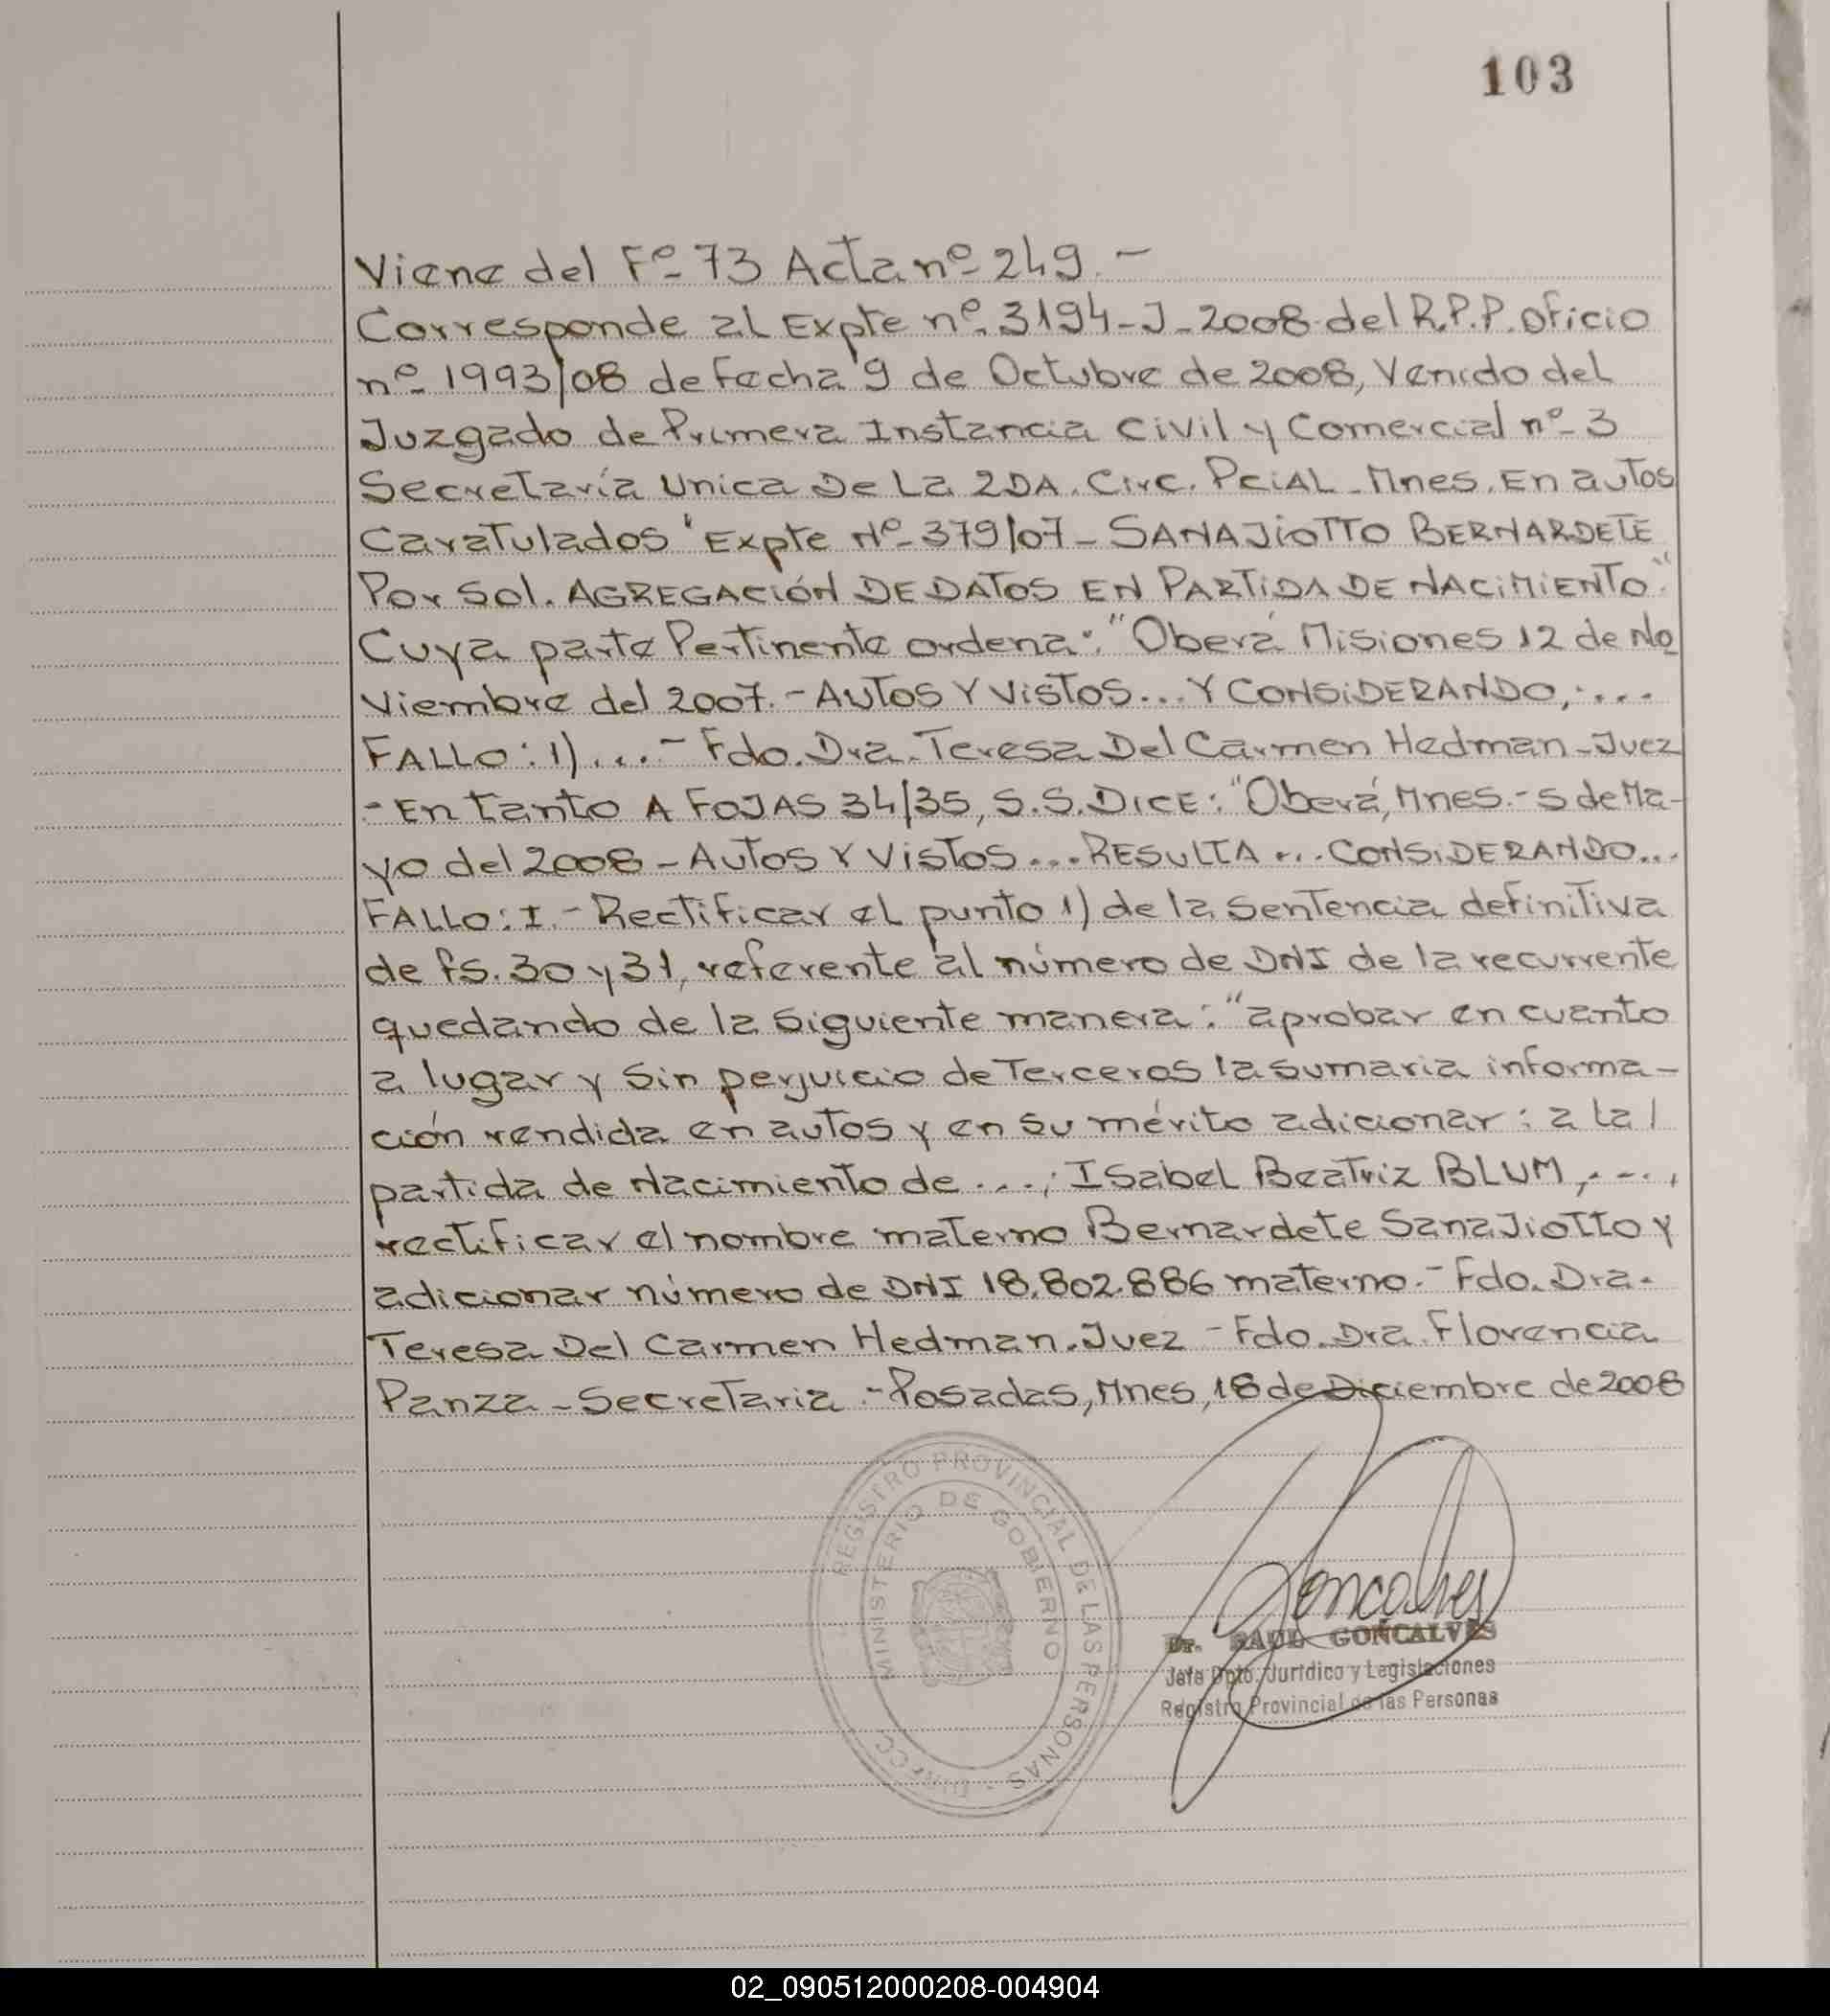 103
Viene del Fº 73 Acta nº 249.-
Corresponde al Expte nº 3194-J-2008 del R.P.P. oficio
nº 1993/08 de Fecha 9 de Octubre de 2008, Venido del
Juzgado de Primera Instancia Civil y Comercial nº 3
Secretaría Unica De La 2DA. Circ. PciAL - Mnes. En autos
Caratulados "Expte Nº 379/07 - SANAJiOTTO BERNARDETE
Por Sol. AGREGACIÓN DE DATOS EN PARTIDA DE NACIMIENTO".
Cuya parte Pertinente ordena: "Oberá Misiones 12 de No
Viembre del 2007.- AUTOS Y VISTOS... Y CONSIDERANDO,....
FALLO: 1)....- Fdo. Dra. Teresa Del Carmen Hedman - Juez
- En tanto A FOJAS 34/35, S.S. DICE: "Oberá, Mnes.- 5 de Ma-
yo del 2008 - AUTOS Y VISTOS... RESULTA... CONSIDERANDO...
FALLO: I.- Rectificar el punto 1) de la sentencia definitiva
de fs. 30 y 31, referente al número de DNI de la recurrente
quedando de la siguiente manera: "aprobar en cuanto
a lugar y sin perjuicio de Terceros la sumaria informa-
ción rendida en autos y en su mérito adicionar: a la /
partida de nacimiento de ...; Isabel Beatriz BLUM, ....,
rectificar el nombre materno Bernardete SanaJiotto y
adicionar número de DNI 18.802.886 materno.- Fdo. Dra.
Teresa Del Carmen Hedman. Juez - Fdo. Dra. Florencia
Panza - Secretaria.- Posadas, Mnes, 18 de Diciembre de 2008
REGISTRO PROVINCIAL DE LAS PERSONAS
MINISTERIO DE GOBIERNO
Goncalves
Dr. RAUL GONCALVES
Jefe Dpto. Jurídico y Legislaciones
Registro Provincial de las Personas
02_090512000208-004904